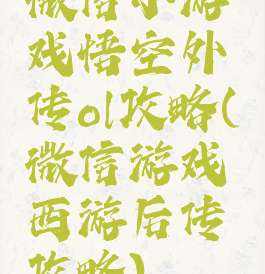 微信小游
戏悟空外
传ol攻略(
微信游戏
西游后传
攻略)